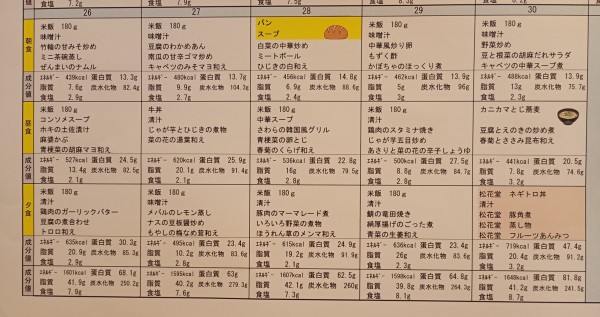 26 27 28 29 30
朝食
米飯 180g
味噌汁
竹輪の甘みそ炒め
ミニ茶碗蒸し
ぜんまいのナムル
米飯 180g
味噌汁
豆腐のわかめあん
南瓜の甘辛ゴマ炒め
キャベツのみそマヨ和え
パン
スープ
白菜の中華炒め
ミートボール
ひじきの白和え
米飯 180g
味噌汁
中華風炒り卵
もずく酢
かぼちゃのほっくり煮
米飯 180g
味噌汁
野菜炒め
豆と根菜の胡麻だれサラダ
キャベツの中華スープ煮
成分値
ｴﾈﾙｷﾞｰ 439kcal 蛋白質 13.3g
脂質 7.6g 炭水化物 82.4g
食塩 2.9g
ｴﾈﾙｷﾞｰ 480kcal 蛋白質 13.7g
脂質 9.9g 炭水化物 104.3g
食塩 2.7g
ｴﾈﾙｷﾞｰ 456kcal 蛋白質 14.8g
脂質 6.9g 炭水化物 88.6g
食塩 2.4g
ｴﾈﾙｷﾞｰ 462kcal 蛋白質 13.9g
脂質 5g 炭水化物 96g
食塩 3g
ｴﾈﾙｷﾞｰ 488kcal 蛋白質 13.9g
脂質 9.4g 炭水化物 75.7g
食塩 2.3g
昼食
米飯 180g
コンソメスープ
ホキの土佐漬け
麻婆かぶ
青梗菜の胡麻マヨ和え
牛丼
清汁
じゃが芋とひじきの煮物
菜の花の湯葉和え
米飯 180g
中華スープ
さわらの韓国風グリル
青梗菜の卵とじ
春菊のくらげ和え
米飯 180g
清汁
鶏肉のスタミナ焼き
じゃが芋五目炒め
あさりと菜の花の辛子しょうゆ
カニカマとじ蕎麦
豆腐とえのきの炒め煮
春菊とささみ昆布和え
成分値
ｴﾈﾙｷﾞｰ 527kcal 蛋白質 24.5g
脂質 13.4g 炭水化物 82.5g
食塩 2.1g
ｴﾈﾙｷﾞｰ 620kcal 蛋白質 25.9g
脂質 20.1g 炭水化物 91.4g
食塩 2.1g
ｴﾈﾙｷﾞｰ 536kcal 蛋白質 22.8g
脂質 16g 炭水化物 79.5g
食塩 2g
ｴﾈﾙｷﾞｰ 500kcal 蛋白質 27.7g
脂質 8.8g 炭水化物 84.5g
食塩 2.7g
ｴﾈﾙｷﾞｰ 441kcal 蛋白質 20.5g
脂質 7.8g 炭水化物 74.6g
食塩 2.2g
夕食
米飯 180g
清汁
鶏肉のガーリックバター
豆腐の煮合わせ
トロロ和え
米飯 180g
味噌汁
メバルのレモン蒸し
ナスの豆板醤炒め
もやしの梅なめ茸和え
米飯 180g
清汁
豚肉のマーマレード煮
いろいろ野菜の煮物
ほうれん草のメンマ和え
米飯 180g
清汁
鯖の竜田焼き
絹厚揚げのごった煮
青菜の生姜和え
松花堂 ネギトロ丼
清汁
松花堂 豚角煮
松花堂 蒸し物
松花堂 フルーツあんみつ
成分値
ｴﾈﾙｷﾞｰ 635kcal 蛋白質 30.3g
脂質 20.9g 炭水化物 85.3g
食塩 2.9g
ｴﾈﾙｷﾞｰ 495kcal 蛋白質 23.4g
脂質 10.2g 炭水化物 83.6g
食塩 2.8g
ｴﾈﾙｷﾞｰ 615kcal 蛋白質 24.9g
脂質 19.2g 炭水化物 91.9g
食塩 2.9g
ｴﾈﾙｷﾞｰ 636kcal 蛋白質 23.4g
脂質 26g 炭水化物 83.6g
食塩 2.4g
ｴﾈﾙｷﾞｰ 719kcal 蛋白質 47.4g
脂質 20.4g 炭水化物 91.2g
食塩 4.2g
成分値
ｴﾈﾙｷﾞｰ 1601kcal 蛋白質 68.1g
脂質 41.9g 炭水化物 250.2g
食塩 7.9g
ｴﾈﾙｷﾞｰ 1595kcal 蛋白質 63g
脂質 40.2g 炭水化物 279.3g
食塩 7.6g
ｴﾈﾙｷﾞｰ 1607kcal 蛋白質 62.5g
脂質 42.1g 炭水化物 260g
食塩 7.3g
ｴﾈﾙｷﾞｰ 1598kcal 蛋白質 64.8g
脂質 39.8g 炭水化物 264.1g
食塩 8.1g
ｴﾈﾙｷﾞｰ 1648kcal 蛋白質 81.8g
脂質 41.2g 炭水化物 241.5g
食塩 8.7g